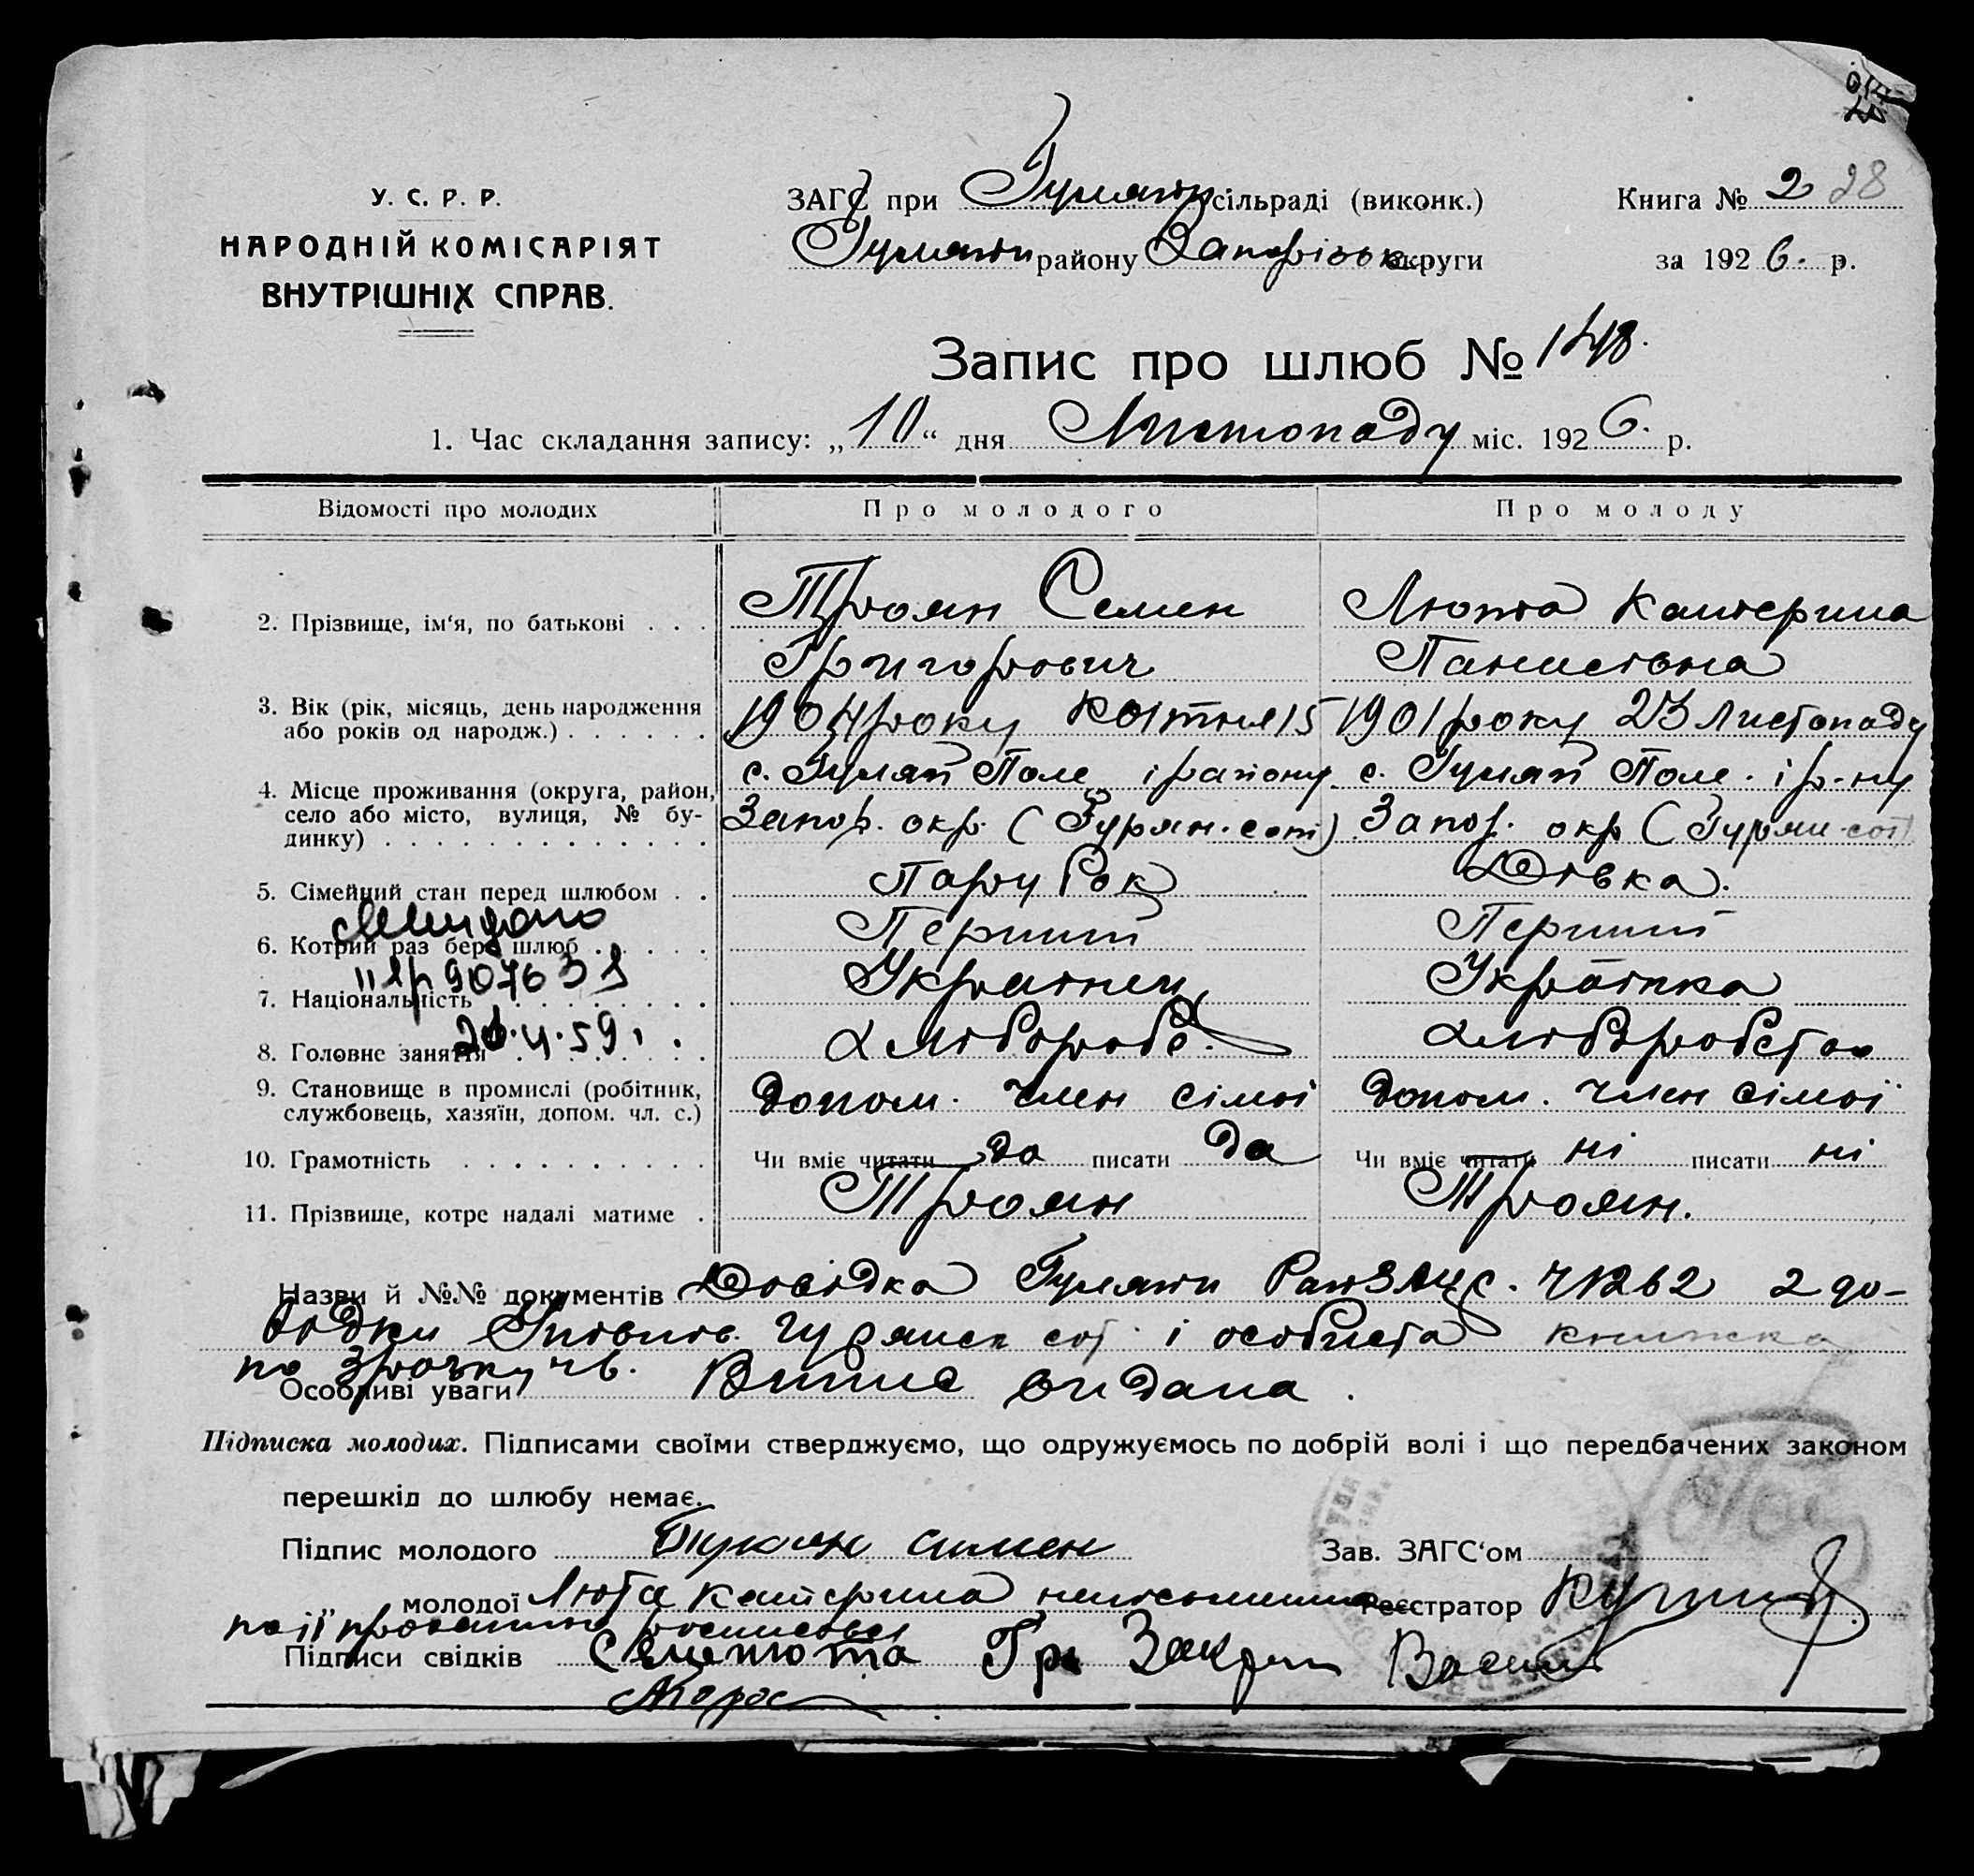 У. С. Р. Р.
НАРОДНІЙ КОМІСАРІЯТ
ВНУТРІШНІХ СПРАВ.
ЗАГС при Гуляйп сільраді (виконк.)
Гуляйп району Запорізьк округи
Книга № 2 28
за 1926. р.
Запис про шлюб № 148.
1. Час складання запису: „10“ дня Листопаду міс. 1926. р.
Відомості про молодих Про молодого Про молоду
2. Прізвище, ім'я, по батькові . . . Троян Семен Люта Катерина
Григорович Панасівна
3. Вік (рік, місяць, день народження 1904 року Костня 15 1901 року 23 Листопаду
або років од народж.) . . . . . .
4. Місце проживання (округа, район, с. Гуляй Поле і району с. Гуляй Поле. і р-ну
село або місто, вулиця, № бу- Запор. окр. (Гурян. сот) Запор. окр (Гурян. сот)
динку) . . . . . . . . . . . . .
5. Сімейний стан перед шлюбом . . Парубок Дівка.
6. Котрий раз бере шлюб . . . . . Перший Перший
907638
7. Національність . . . . . . . . Українец Українка
59.
8. Головне заняття . . . . . . . Хлібороб. Хліборобство
9. Становище в промислі (робітник,
службовець, хазяїн, допом. чл. с.) допом. член сімьі допом. член сімьї
10. Грамотність . . . . . . . . . . Чи вміє читати да писати да Чи вміє читати ні писати ні
11. Прізвище, котре надалі матиме . Троян Троян.
Назви й №№ документів Довідка Гуляйп 2 до-
відки Гурянск сот і особиста книжка
по
Особливі уваги Випис видана.
Підписка молодих. Підписами своїми стверджуємо, що одружуємось по добрій волі і що передбачених законом
перешкід до шлюбу немає.
Підпис молодого Семен Зав. ЗАГС'ом
„ молодої Люта Катерина неписьменна Реєстратор
по її проханню росписався
Підписи свідків Семенюта Гр Василь